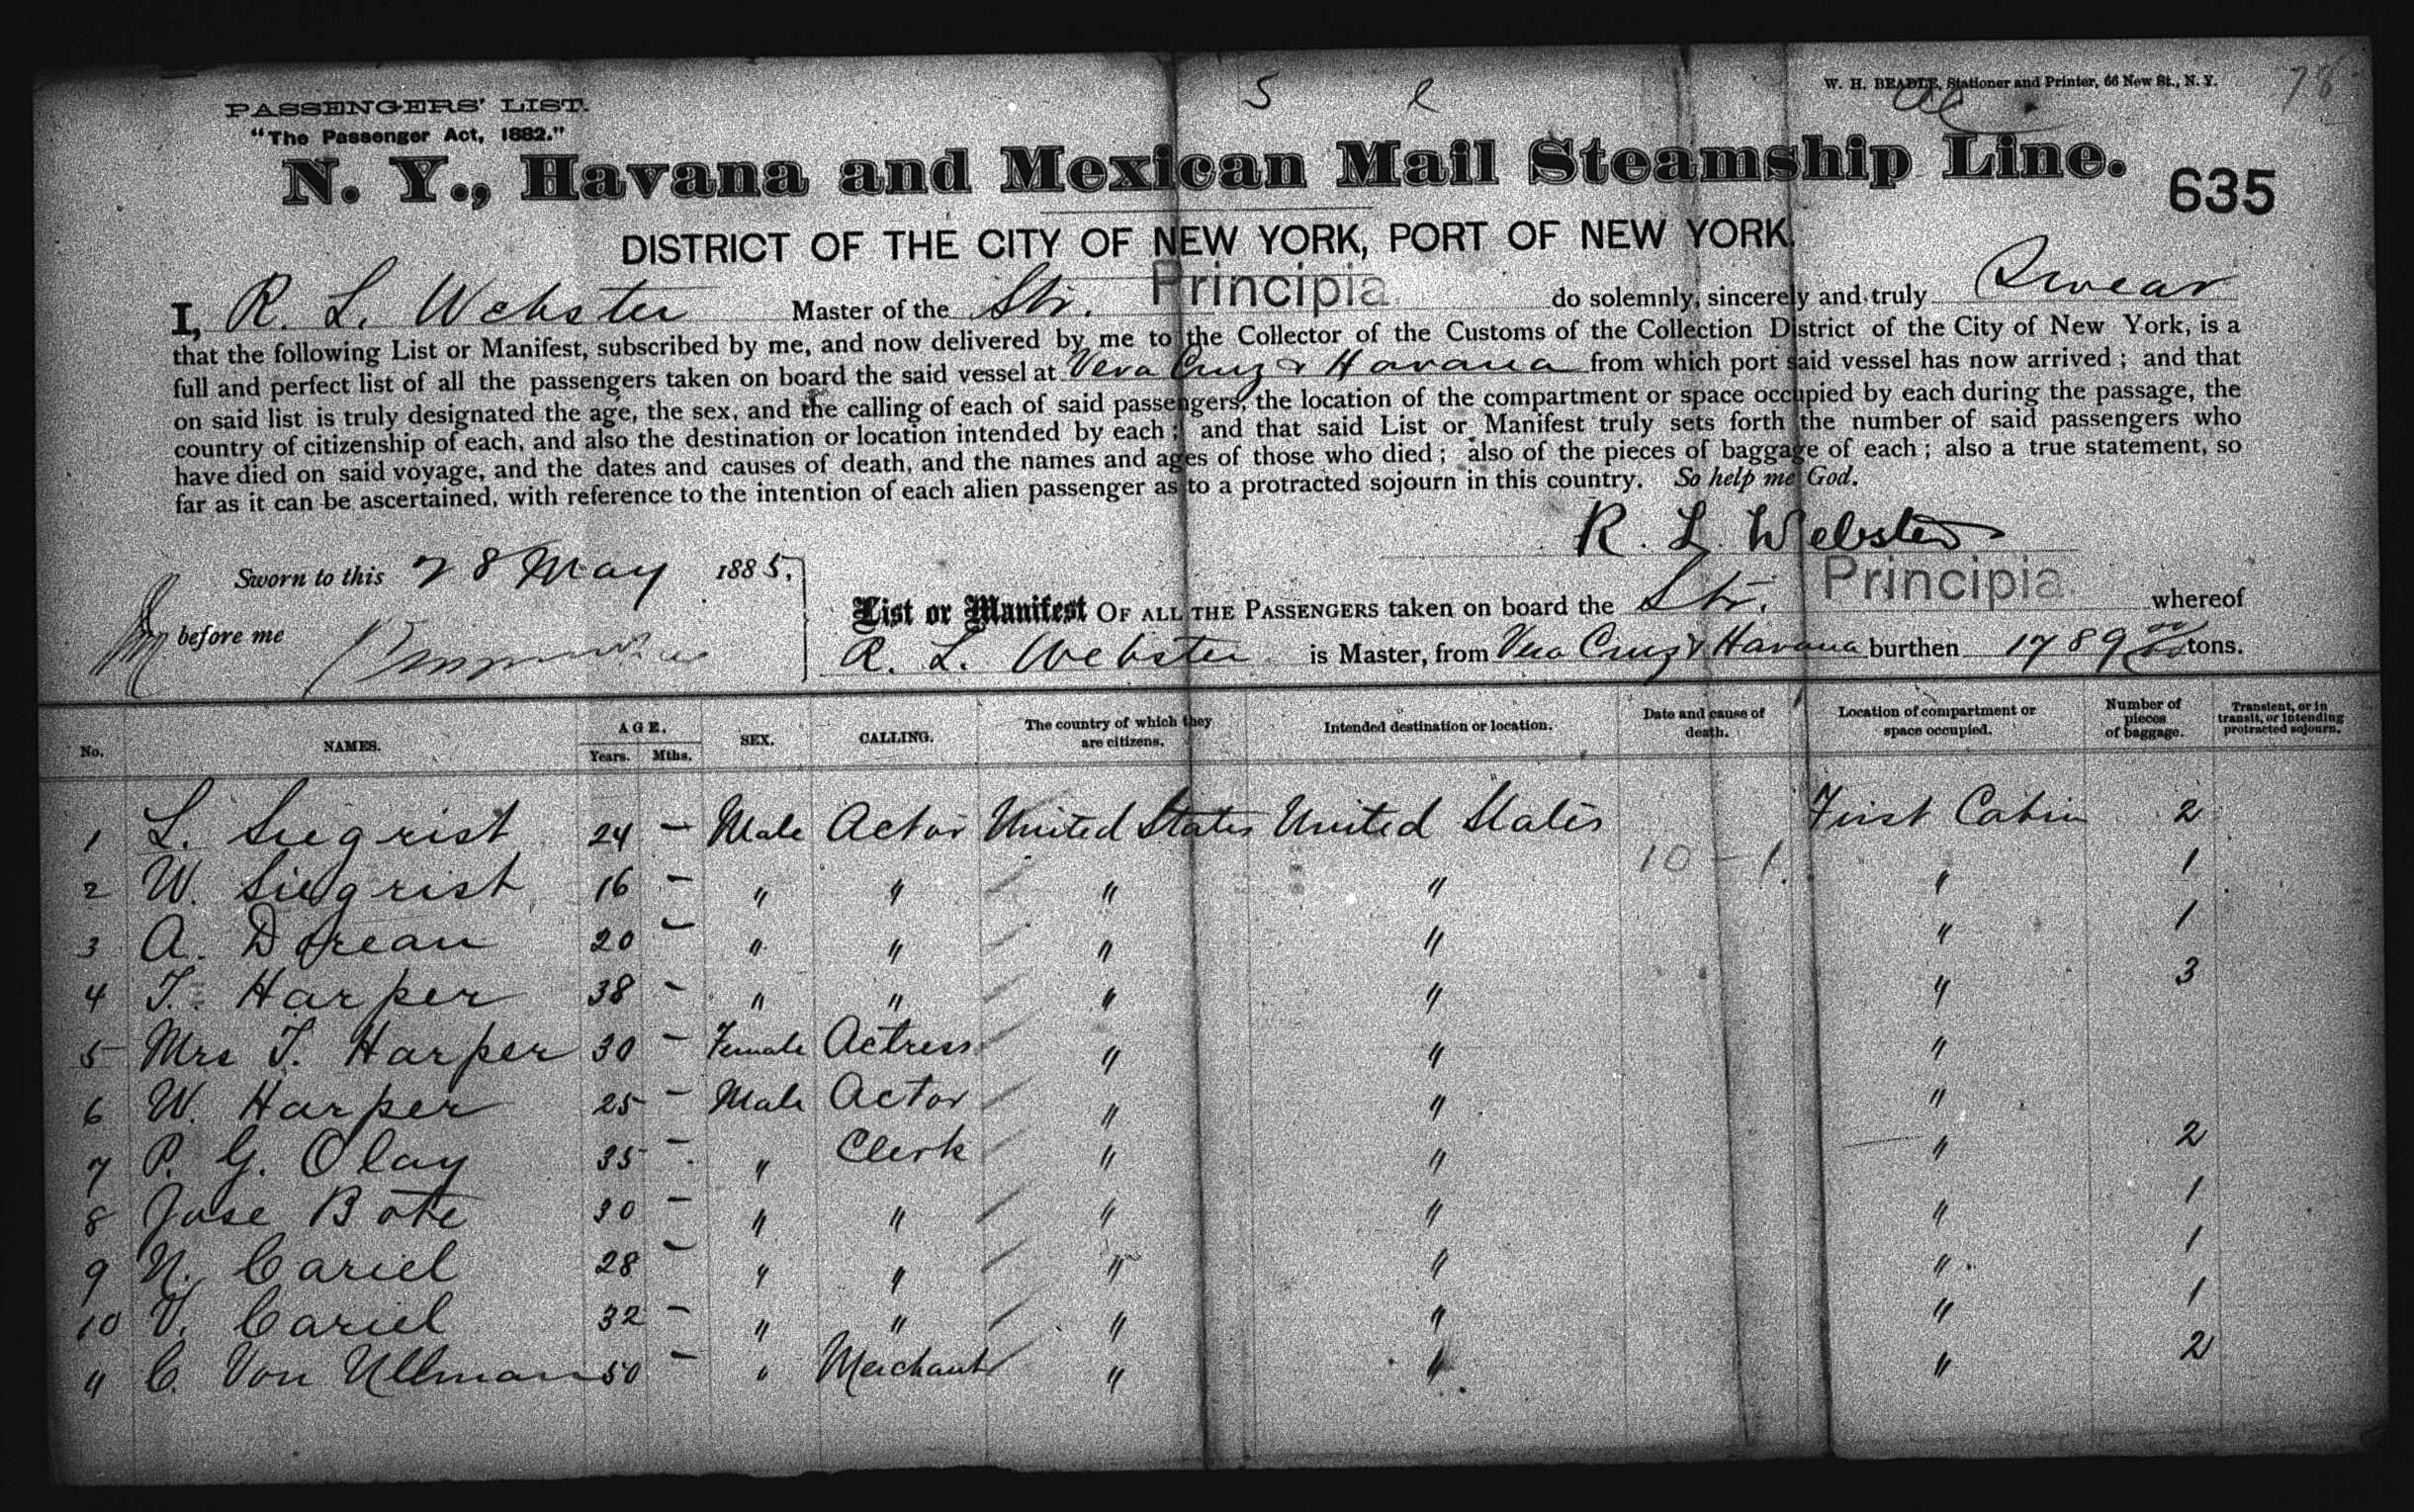 S l
W. H. BEADLE, Stationer and Printer, 66 New St., N. Y.
78
PASSENGERS' LIST.
"The Passenger Act, 1882."
N. Y., Havana and Mexican Mail Steamship Line.
635
DISTRICT OF THE CITY OF NEW YORK, PORT OF NEW YORK.
I, R. L. Webster Master of the Str. Principia do solemnly, sincerely and truly Swear
that the following List or Manifest, subscribed by me, and now delivered by me to the Collector of the Customs of the Collection District of the City of New York, is a
full and perfect list of all the passengers taken on board the said vessel at Vera Cruz & Havana from which port said vessel has now arrived; and that
on said list is truly designated the age, the sex, and the calling of each of said passengers, the location of the compartment or space occupied by each during the passage, the
country of citizenship of each, and also the destination or location intended by each; and that said List or Manifest truly sets forth the number of said passengers who
have died on said voyage, and the dates and causes of death, and the names and ages of those who died; also of the pieces of baggage of each; also a true statement, so
far as it can be ascertained, with reference to the intention of each alien passenger as to a protracted sojourn in this country. So help me God.
R. L. Webster
Sworn to this 28 May 1885.
before me
List or Manifest OF ALL THE PASSENGERS taken on board the Str. Principia whereof
R. L. Webster is Master, from Vera Cruz & Havana burthen 1789 tons.
No. NAMES. AGE. Years. Mths. SEX. CALLING. The country of which they are citizens. Intended destination or location. Date and cause of death. Location of compartment or space occupied. Number of pieces of baggage. Transient, or in transit, or intending protracted sojourn.
1 L. Siegrist 24 – Male Actor United States United States First Cabin 2
10 – 1
2 W. Siegrist 16 – " " " " " 1
3 A. Dorean 20 – " " " " " 1
4 T. Harper 38 – " " " " " 3
5 Mrs T. Harper 30 – Female Actress " " "
6 W. Harper 25 – Male Actor " " "
7 P. G. Olay 35 – " Clerk " " " 2
8 Jose Bote 30 – " " " " " 1
9 N. Cariel 28 – " " " " " 1
10 V. Cariel 32 – " " " " " 1
11 C. Von Ullman 50 – " Merchant " " " 2